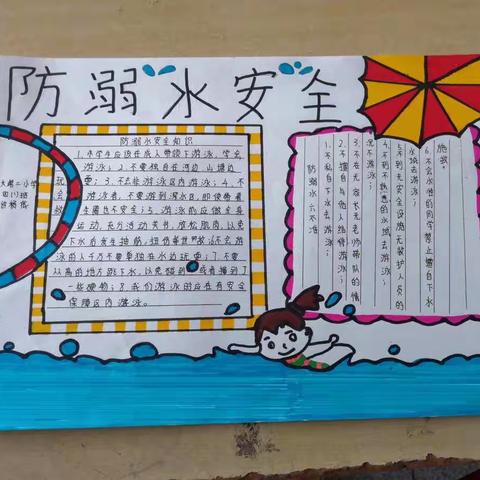 防溺水安全
防溺水安全知识
1.小学生应该在成人带领下游泳,学会
游泳;2.不要独自在河边、山塘边
玩耍;3.不去非游泳区内游泳;4.不
会游泳者,不要游到深水区,即使带着
救生圈也不安全;5.游泳前应做全身
运动,充分活动关节,放松肌肉,以免
下水后发生抽筋、扭伤等
泳的人千万不要单独在水边玩耍;7.不要
从高的地方跳下水,以免
一些硬物;8.我们游泳的应在有安全
保障区内游泳。
防溺水六不准
1.不私自下水去游泳;
2.不擅自与他人结伴游泳;
3.不在无家长无老师带队的情
况游泳;
4.不到不熟悉的水域去游泳;
5.不到无安全设施无救护人员的
水域去游泳;
6.不会水性的同学禁止擅自下水
施救。